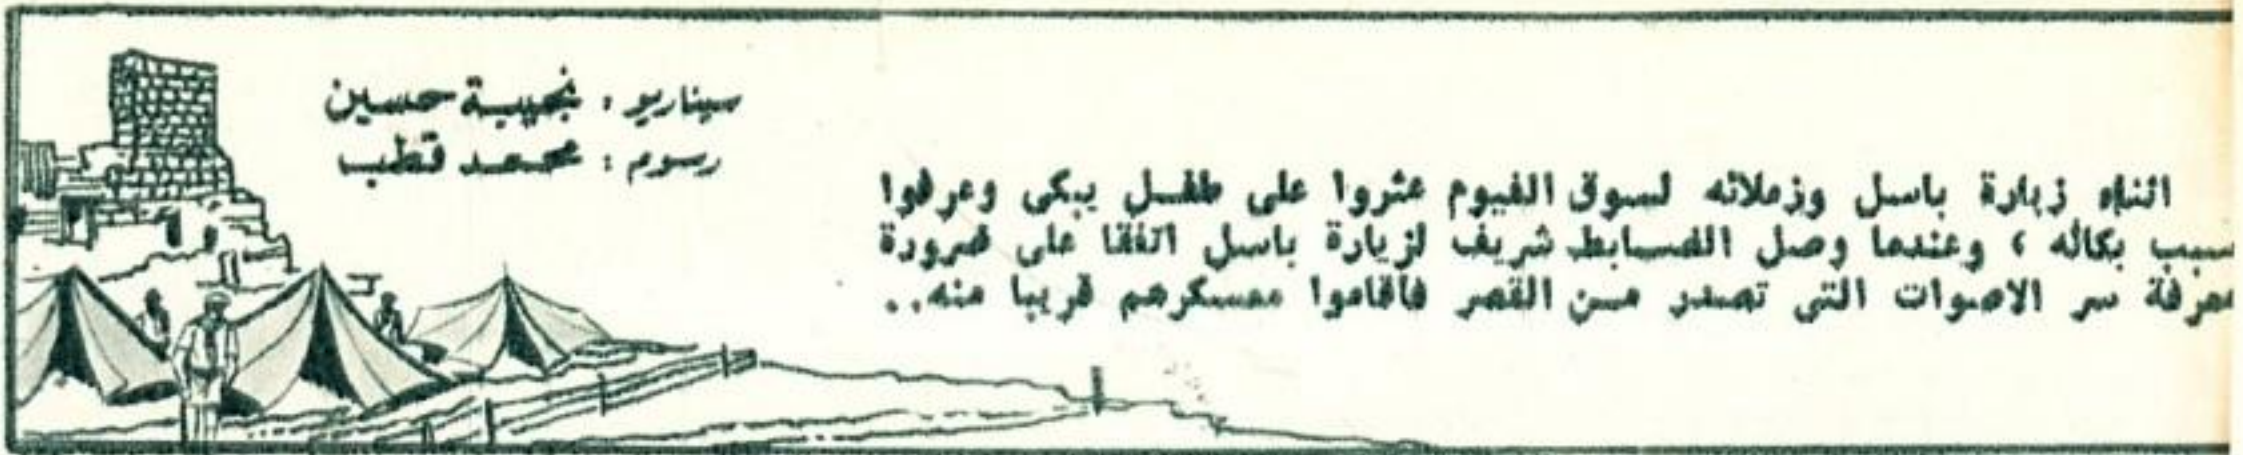 سيناريو : نجيبة حسين
رسوم : محمد قطب
اثناء زيارة باسل وزملائه لسوق الفيوم عثروا على طفل يبكى وعرفوا
سبب بكائه ، وعندما وصل الضابط شريف لزيارة باسل اتفقا على ضرورة
معرفة سر الاصوات التى تصدر من القصر فأقاموا معسكرهم قريبا منه..